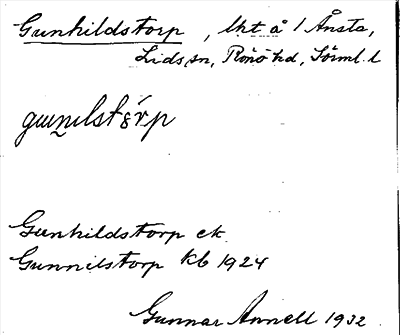 Gunhildstorp, lht å 1 Ånsta,
Lids sn, Rönö hd, Sörml. l
Gunhildstorp ek
Gunnilstorp kb 1924
Gunnar Annell 1932